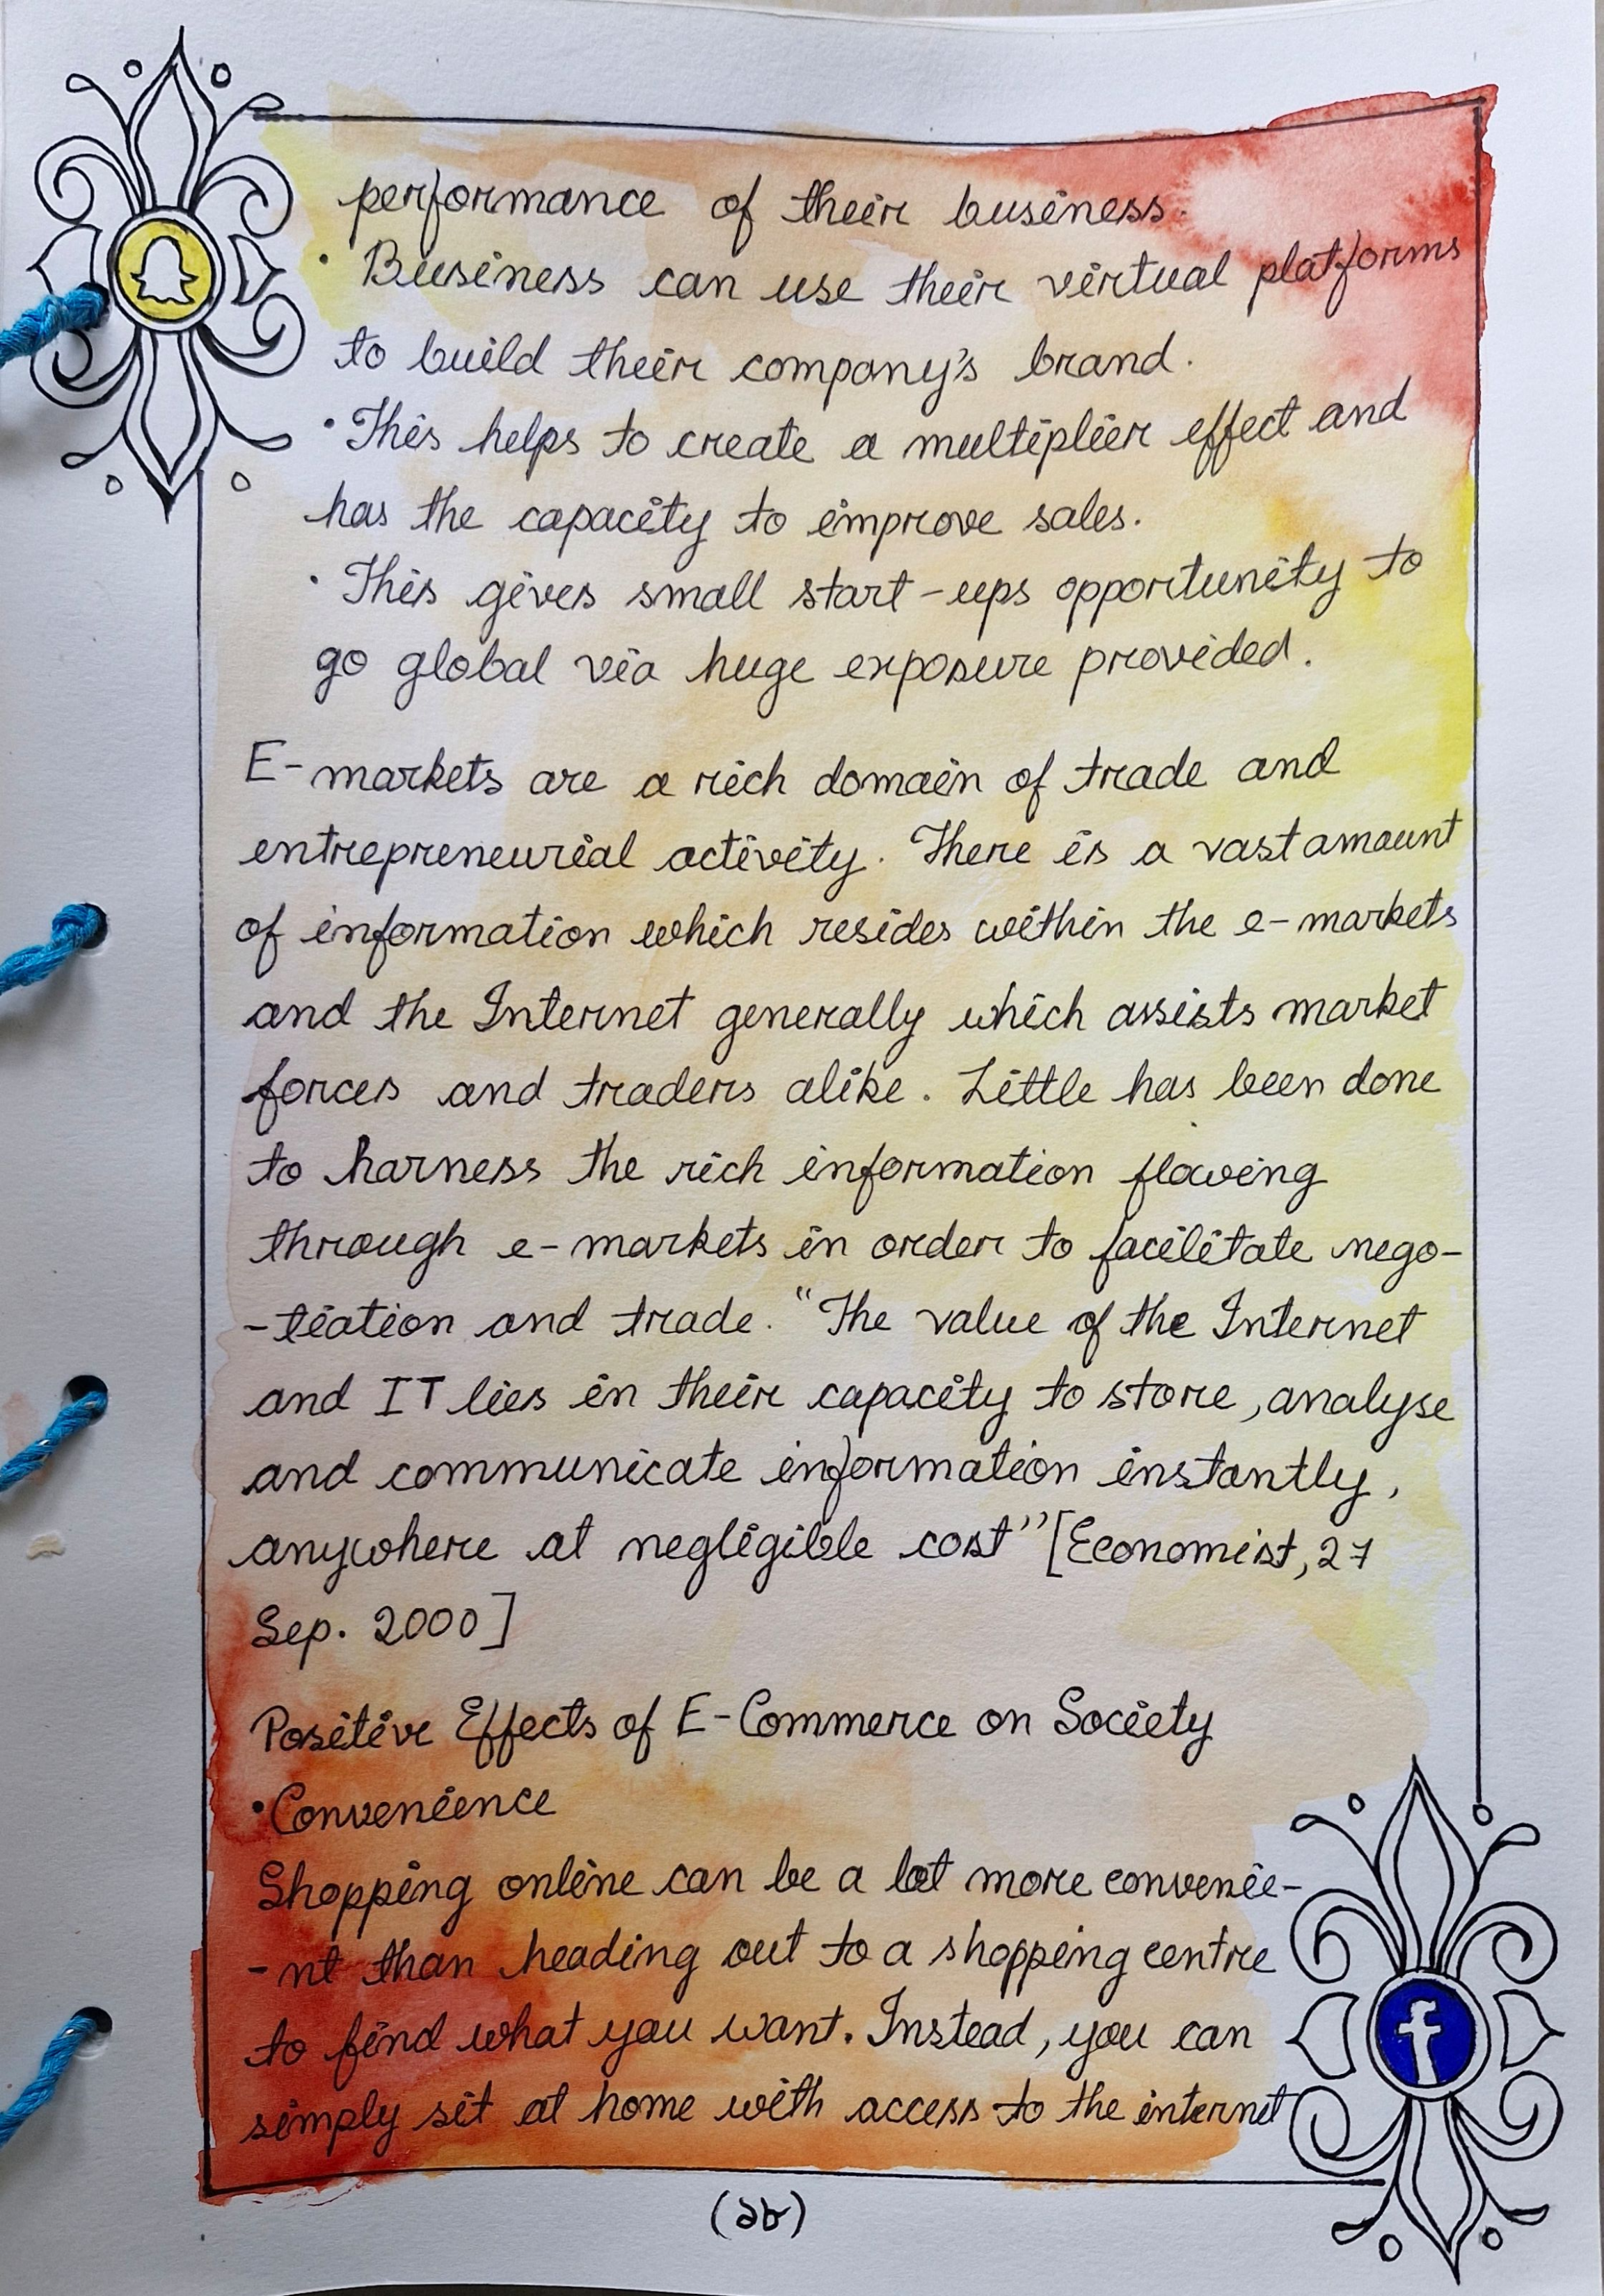 performance of their business.
• Business can use their virtual platforms
to build their company's brand.
• This helps to create a multiplier effect and
has the capacity to improve sales.
• This gives small start-ups opportunity to
go global via huge exposure provided.
E-markets are a rich domain of trade and
entrepreneurial activity. There is a vast amount
of information which resides within the e-markets
and the Internet generally which assists market
forces and traders alike. Little has been done
to harness the rich information flowing
through e-markets in order to facilitate nego-
-tiation and trade. "The value of the Internet
and IT lies in their capacity to store, analyse
and communicate information instantly,
anywhere at negligible cost" [Economist, 27
Sep. 2000]
Positive Effects of E-Commerce on Society
• Convenience
Shopping online can be a lot more convenie-
-nt than heading out to a shopping centre
to find what you want. Instead, you can
simply sit at home with access to the internet